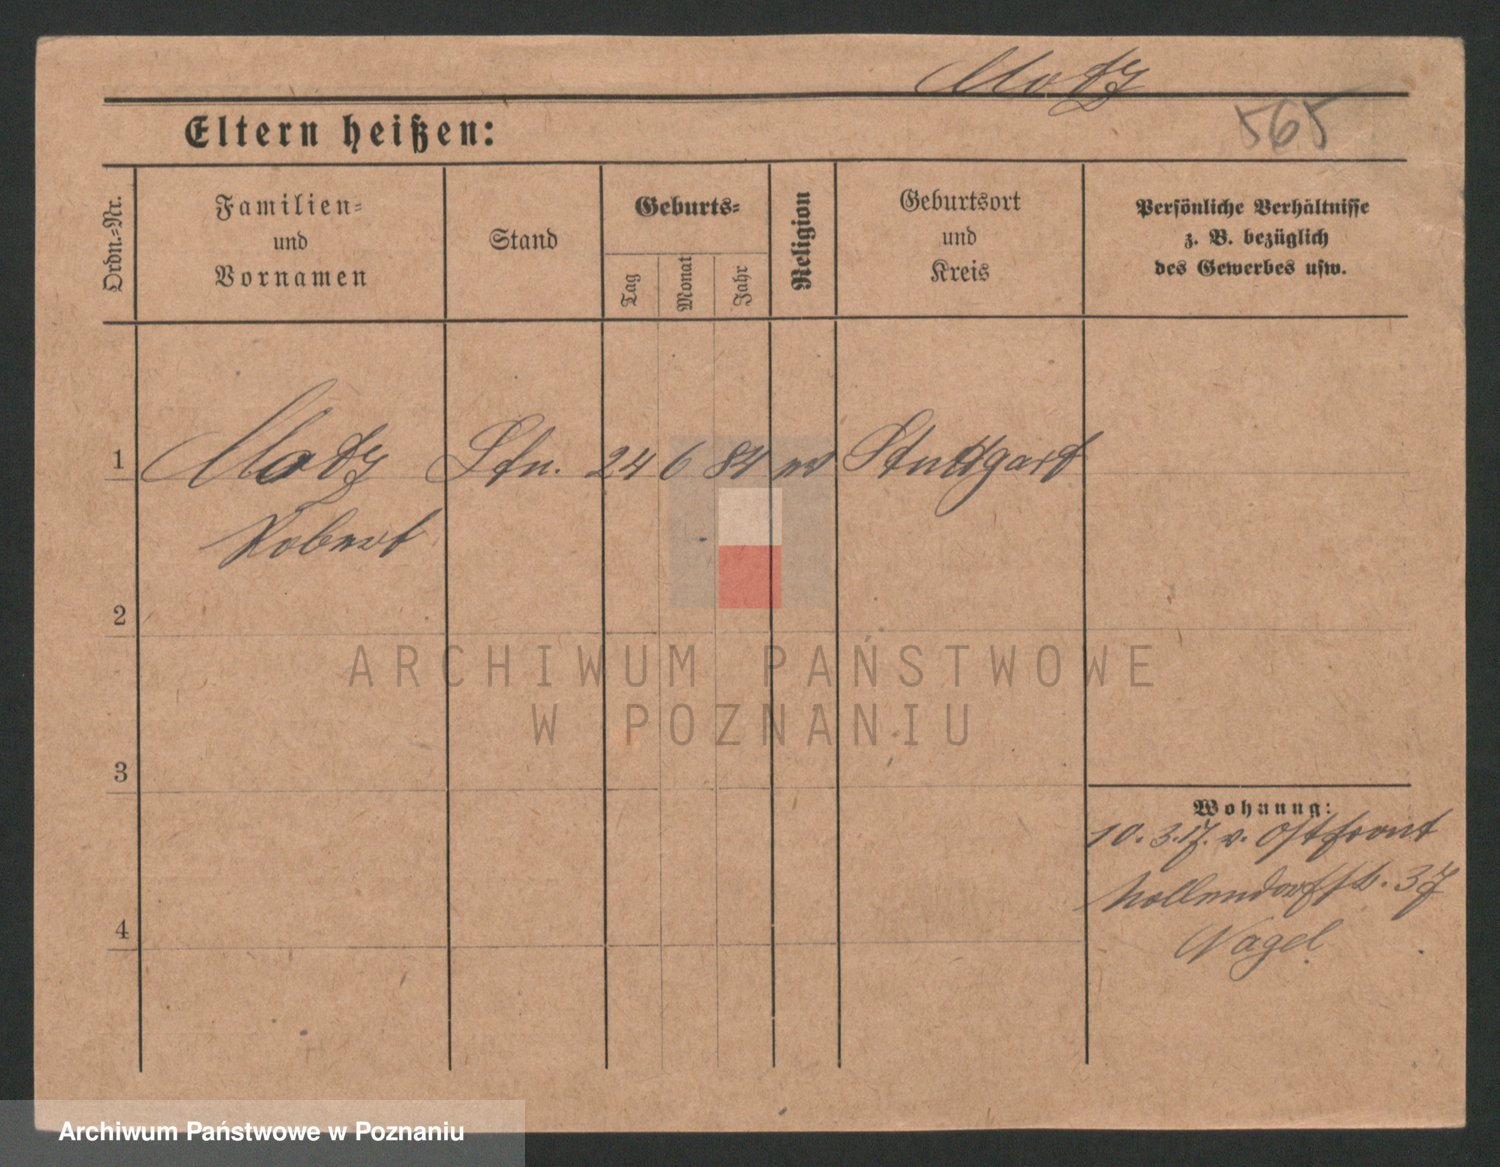 Motz
565
Eltern heißen:
Ordn.-Nr.
Familien-
und
Vornamen
Stand
Geburts-
Tag
Monat
Jahr
Religion
Geburtsort
und
Kreis
Persönliche Verhältnisse
z. B. bezüglich
des Gewerbes usw.
1
Motz
24 6 84
Stuttgart
Robert
2
ARCHIWUM PAŃSTWOWE
W POZNANIU
3
Wohnung:
10. 3. 17. v. Ostfront
Nollendorfstr. 37
Nagel
4
Archiwum Państwowe w Poznaniu